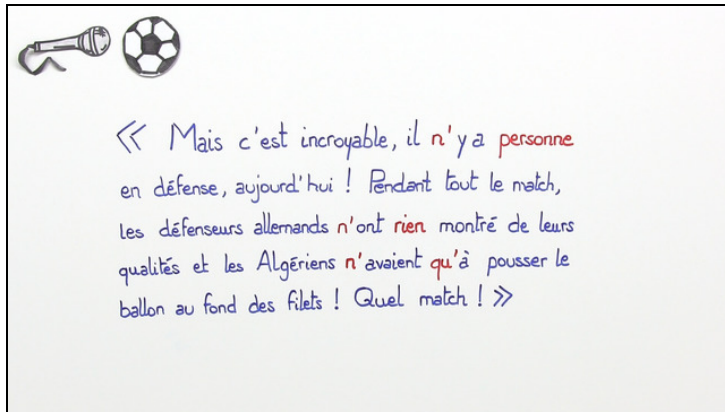 « Mais c'est incroyable, il n'y a personne
en défense, aujourd'hui ! Pendant tout le match,
les défenseurs allemands n'ont rien montré de leurs
qualités et les Algériens n'avaient qu'à pousser le
ballon au fond des filets ! Quel match ! »